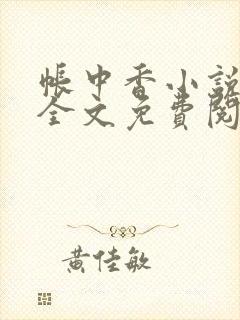 帳中香小說
全文免費閱
黃佳敏